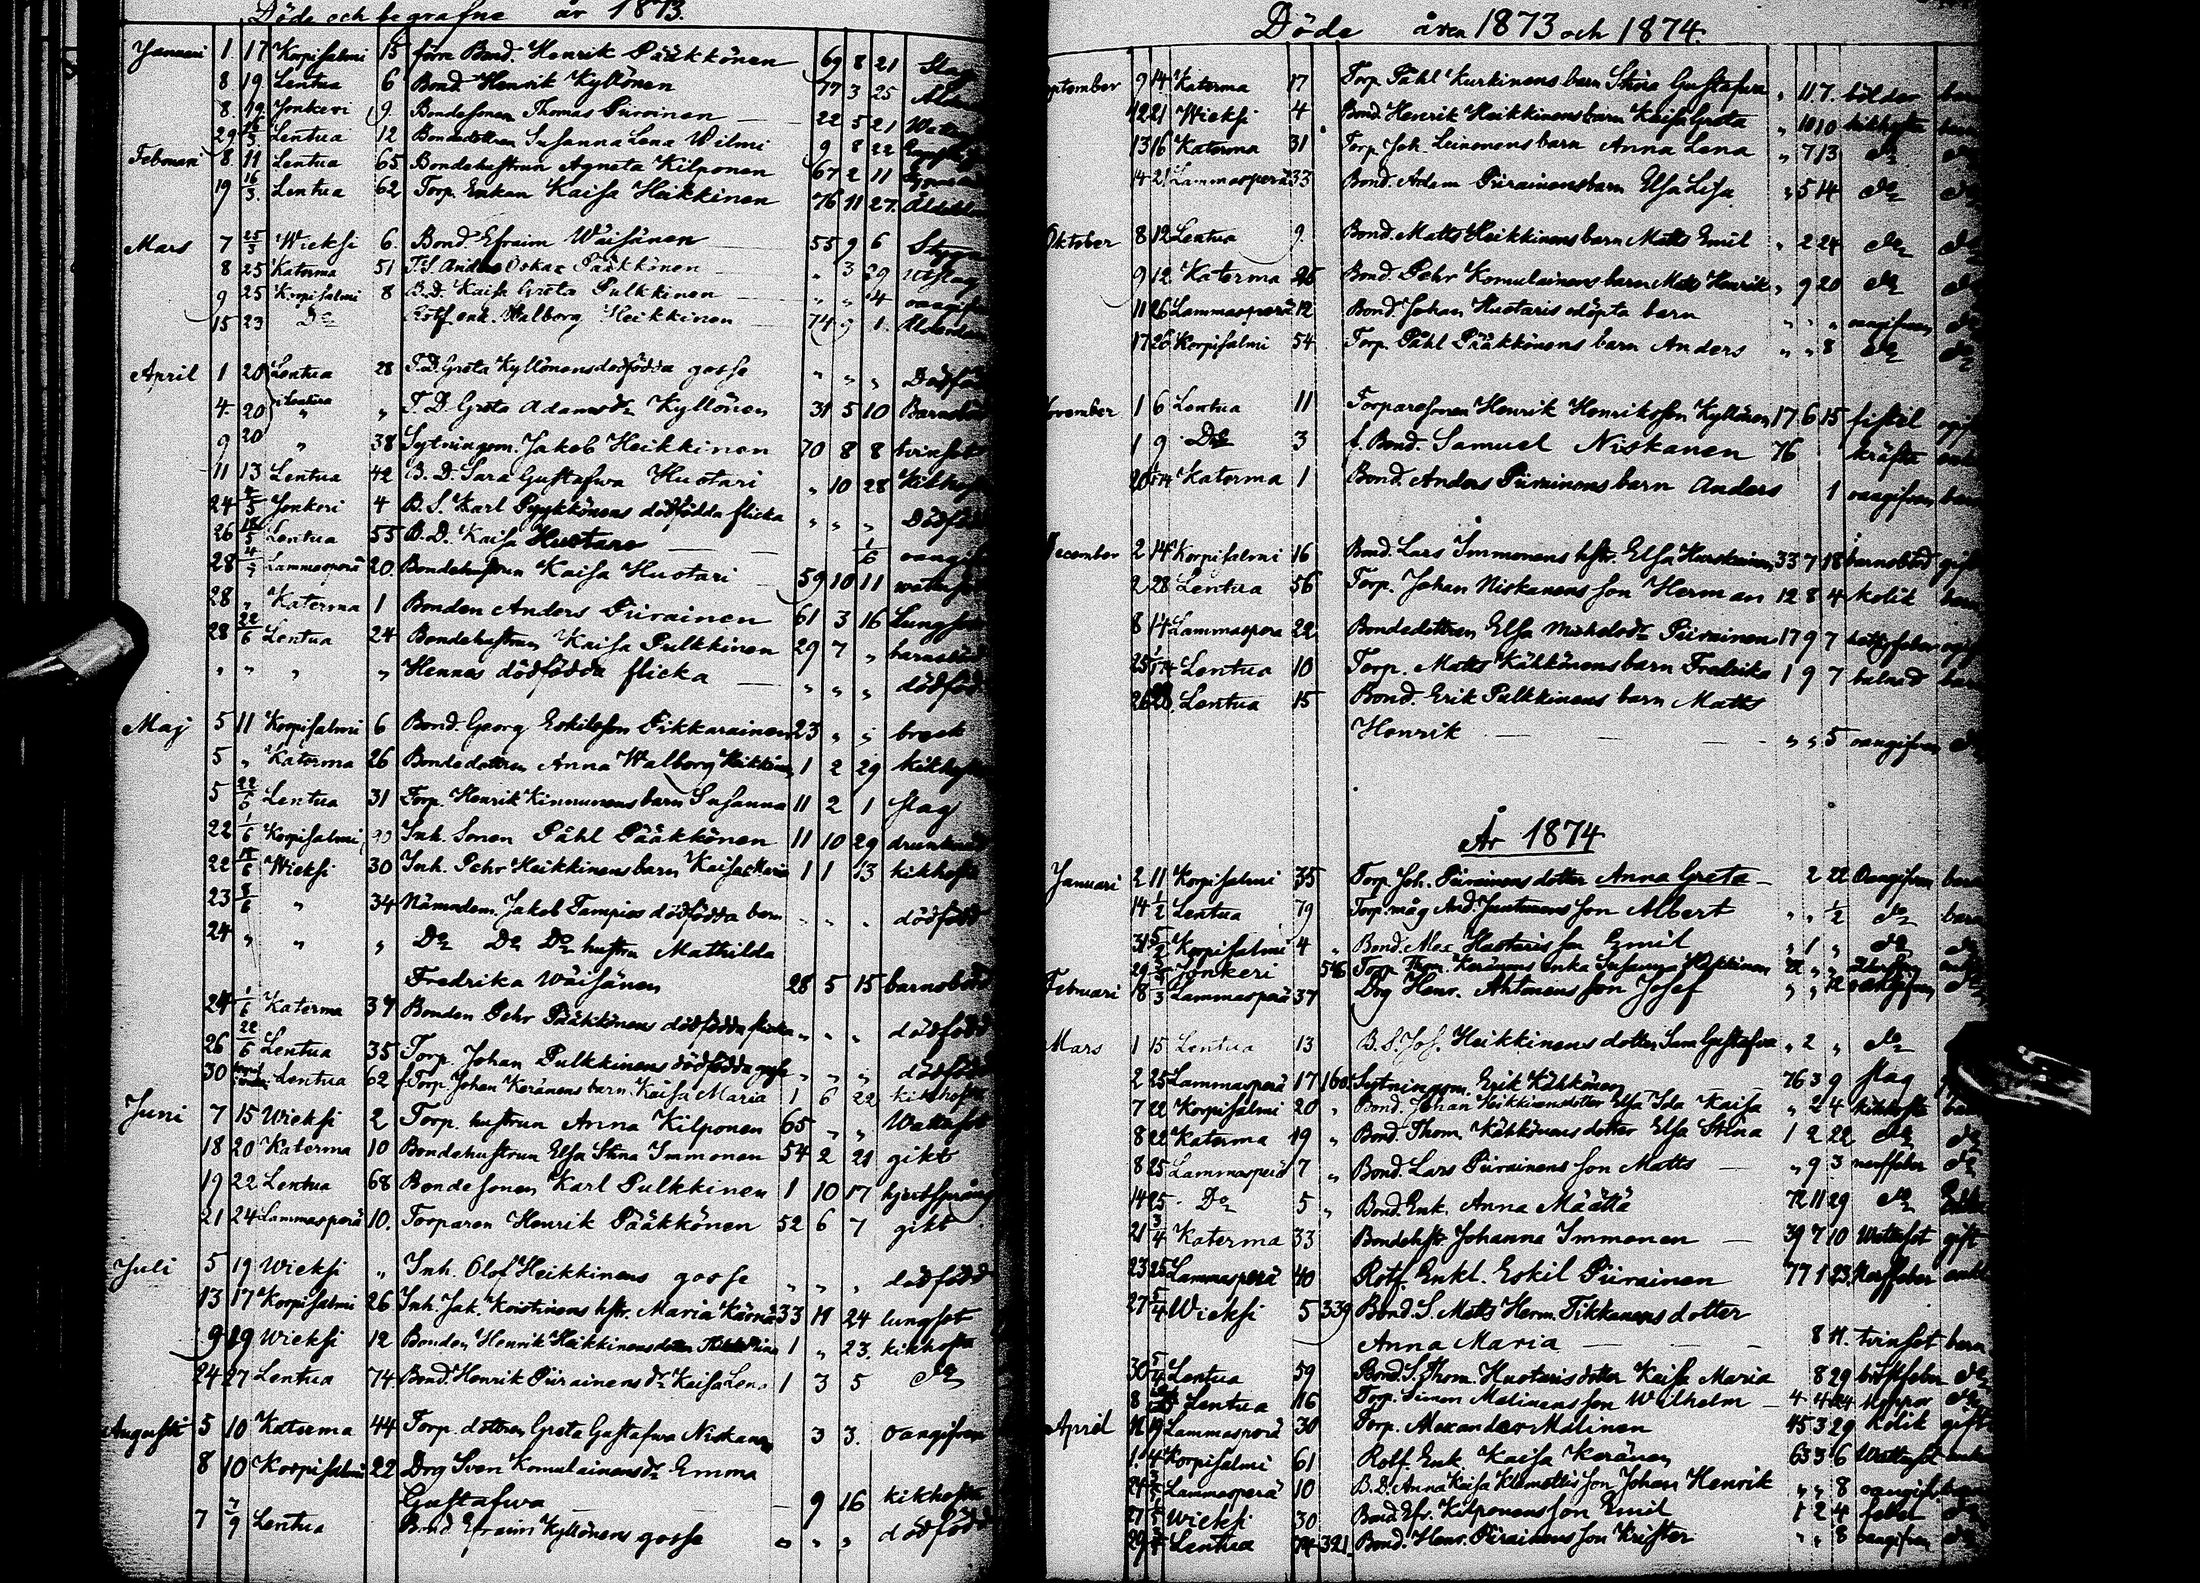 Döde och begrafne år 1873.
Januari 1. 17 Korpisalmi 15 förra Bond. Henrik Pääkkönen 69 8 21 Slag
8 19 Lentua 6 Bond. Henrik Kyllönen 77 3 25
8. 19 Jonkeri 9. Bondesonen Thomas Piirainen 22 5 21
29 Lentua 12 Bondedottren Susanna Lena Wilmi 9 8 22
Februari 8 11 Lentua 65 Bondehustrun Agneta Kilponen 67 2 11
19 16/3. Lentua 62 Torp. Enkan Kaisa Heikkinen 76 11 27.
Mars 7 25/3 Wieksi 6. Bond. Efraim Wäisänen 55 9 6
8 25 Katerma 51 T.S. Anders Oskar Pääkkönen " 3 29
9 25 Korpisalmi 8 B.D. Kaisa Greta Pulkkinen " " 4
15 23 Do Rotf. enk. Walborg Heikkinen 74 9 1
April 1 20 Lentua 28 T.D. Greta Kyllönens dödfödda gosse " " "
4. 20 Lentua " T.D. Greta Adamsdr Kyllönen 31 5 10
9 20 " 38 Sytningsm. Jakob Heikkinen 70 8 8 tvinsot
11 13 Lentua 42 B.D. Sara Gustafwa Huotari " 10 28
24 Jonkeri 4 B.S. Karl Pyykkönens dödfödda flicka " " "
26 Lentua 55 B.D. Kaisa Huotars 1/6
28 Lammasperä 20. Bondehustrun Kaisa Huotari 59 10 11
28 " Katerma 1 Bonden Anders Piirainen 61 3 16
28 22/6 Lentua 24 Bondehustrun Kaisa Pulkkinen 29 7 "
" " " " Hennes dödfödda flicka " " "
Maj 5 11 Korpisalmi 6 Bond. Georg Eskilsson Pikkarainen 23 " " brock
5 " Katerma 26 Bondedottren Anna Walborg Heikkinen 1 2 29
5 22/6 Lentua 31 Torp. Henrik Kinnunens barn Susanna 11 2 1 slag
22 1/6 Korpisalmi Inh. Sonen Påhl Pääkkönen 11 10 29 drunknad
22 Wieksi 30 Inh. Pehr Heikkinens barn Kaisa Maria 1 1 13 kikhosta
23 8/6 " 34 Nämndem. Jakob Tampios dödfödda barn " " " dödfödd
24 " " " Do Do Do hustru Mathilda
Fredrika Wäisänen 28 5 15 barnsbörd
24 1/6 Katerma 37 Bonden Pehr Pääkkönens dödfödda flicka " " " dödfödd
26 22/6 Lentua 35 Torp. Johan Pulkkinens dödfödda gosse " " " dödfödd
30 Lentua 62 f. Torp. Johan Keränens barn Kaisa Maria 1 6 22 kikhosta
Juni 7 15 Wieksi 2 Torp. hustrun Anna Kilponen 65 " " Wattusot
18 20 Katerma 10 Bondehustrun Elsa Stina Immonen 54 2 21 gikt
19 22 Lentua 68 Bondesonen Karl Pulkkinen 1 10 17 hjertsprång
21 24 Lammasperä 10. Torparen Henrik Pääkkönen 52 6 7 gikt
Juli 5 19 Wieksi " Inh. Olof Heikkinens gosse " " " dödfödd
13 17 Korpisalmi 26 Inh. Jak. Koistinens hstr. Maria Kärnä 33 11 24 lungsot
9 19 Wieksi 12 Bonden Henrik Heikkinens dotter 1 " 23. kikhosta
24 27 Lentua 74 Bond. Henrik Piirainens dr Kaisa Lena 1 3 5 do
Augusti 5 10 Katerma 44 Torp. dottren Greta Gustafwa Niskanen 3 3. oangifven
8 10 Korpisalmi 22 Drg Sven Komulainens dr Emma
Gustafwa 9 16 kikhosta
7 7/9 Lentua Bond Efraim Kyllönens gosse " " " dödfödd
Döde åren 1873 och 1874.
September 9 14 Katerma 17 Torp. Påhl Kurkinens barn Stina Gustafwa " 11. 7. bölder barn
12 21 Wieksi 4 Bond. Henrik Heikkinens barn Kaisa Greta " 10 10 kikhosta barn
13 16 Katerma 31 Torp. Joh. Leinonens barn Anna Lena " 7 13 do do
14 21 Lammasperä 33 Bond. Adam Piirainens barn Elsa Lisa " 5 14 do do
Oktober 8 12 Lentua 9. Bond. Matts Heikkinens barn Matts Emil " 2 24 do do
9 12 Katerma 26 Bond. Pehr Komulainens barn Matts Henrik " 9 20 do do
11 26 Lammasperä 12 Bond. Johan Huotaris odöpta barn " " " oangifven do
17 26 Korpisalmi 54 Torp. Påhl Pääkkönens barn Anders " " 8 do do
November 1 6 Lentua 11 Torparesonen Henrik Henriksson Kyllönen 17 6 15 fistel ogift
1 9 Do 3 f. Bond. Samuel Niskanen 76 kräfta
20 Katerma 1 Bond. Anders Piirainens barn Anders 1 oangifven barn
December 2 14 Korpisalmi 16 Bond. Lars Immonens hstr. Elsa 33 7 18 barnsbörd gift
2 28 Lentua 56 Torp. Johan Niskanens son Herman 12 8 4 kolik barn
8 14 Lammaspera 22 Bondedottren Elsa Michelsdr Piirainen 17 9 7
25 Lentua 10 Torp. Matts Kähkönens barn Fredrika 1 9 7 bulnad barn
26 28. Lentua 15 Bond. Erik Pulkkinens barn Matts
Henrik " " 5 oangifven do
År 1874
Januari 2 11 Korpisalmi 35 Torp. Joh. Piirainens dotter Anna Greta 2 22 Oangifven barn
14 1/2 Lentua 79 Torp. måg And. Juntunens son Albert " " 1/2 do barn
31 Korpisalmi 4 " Bond. Alex Huotaris son Emil " 1 " do do
29 Jonkeri 546 Torp. Thom. Keränens enka Susanna Heikkinen
Februari 18 Lammasperä 37 Drg Henr. Ahtonens son Josef " " 12 oangifven do
Mars 1 15 Lentua 13 B.S. Jos. Heikkinens dotter Sara Gustafwa " 2 " do
2 25 Lammasperä 17 160 Sytningsm. Erik Kähkönen 76 3 9 slag
7 22 Korpisalmi 20 " Bond. Johan Heikkinens dotter Elsa Ida Kaisa " 2 4 kikhosta
8 22 Katerma 19 " Bond. Thom. Kähkönens dotter Elsa Stina 1 2 22 do do
8 25 Lammasperä 7 " Bond. Lars Piirainens son Matts " 9 3 nerffeber do
14 25 Do 5 " Bond. Enk. Anna Määttä 72 11 29 do
21 3/4 Katerma 33 Bondehstr. Johanna Immonen 39 7 10 Wattusot gift
23 25 Lammasperä 40 Rotf. Enkl. Eskil Piirainen 77 1 23 Nerffeber enkl
27 5/4 Wieksi 5 339 Bond. S. Matts Herm. Tikkanens dotter
Anna Maria 8 11. tvinsot barn
30 5/4 Lentua 59 Bond. S. Thom. Huotaris dotter Kaisa Maria 8 29 bröstfeber do
8 Lentua 116 Torp. Simon Malinens son Wilhelm 4 4 24 koppor do
April 12 19 Lammasperä 30 Torp. Alexander Malinen 45 3 29 Kolik gift
Korpisalmi 61 Rotf. Enk. Kaisa Keränen 63 3 6 Wattusot
24 Lammasperä 10 B.D. Anna Kaisa Klemettis son Johan Henrik " " 8
27 Wieksi 30 Bond. Efr. Kilponens son Emil 1 2 4 feber do
29 Lentua 74 321. Bond. Henr. Piirainens son Krister " " 8 oangifven do